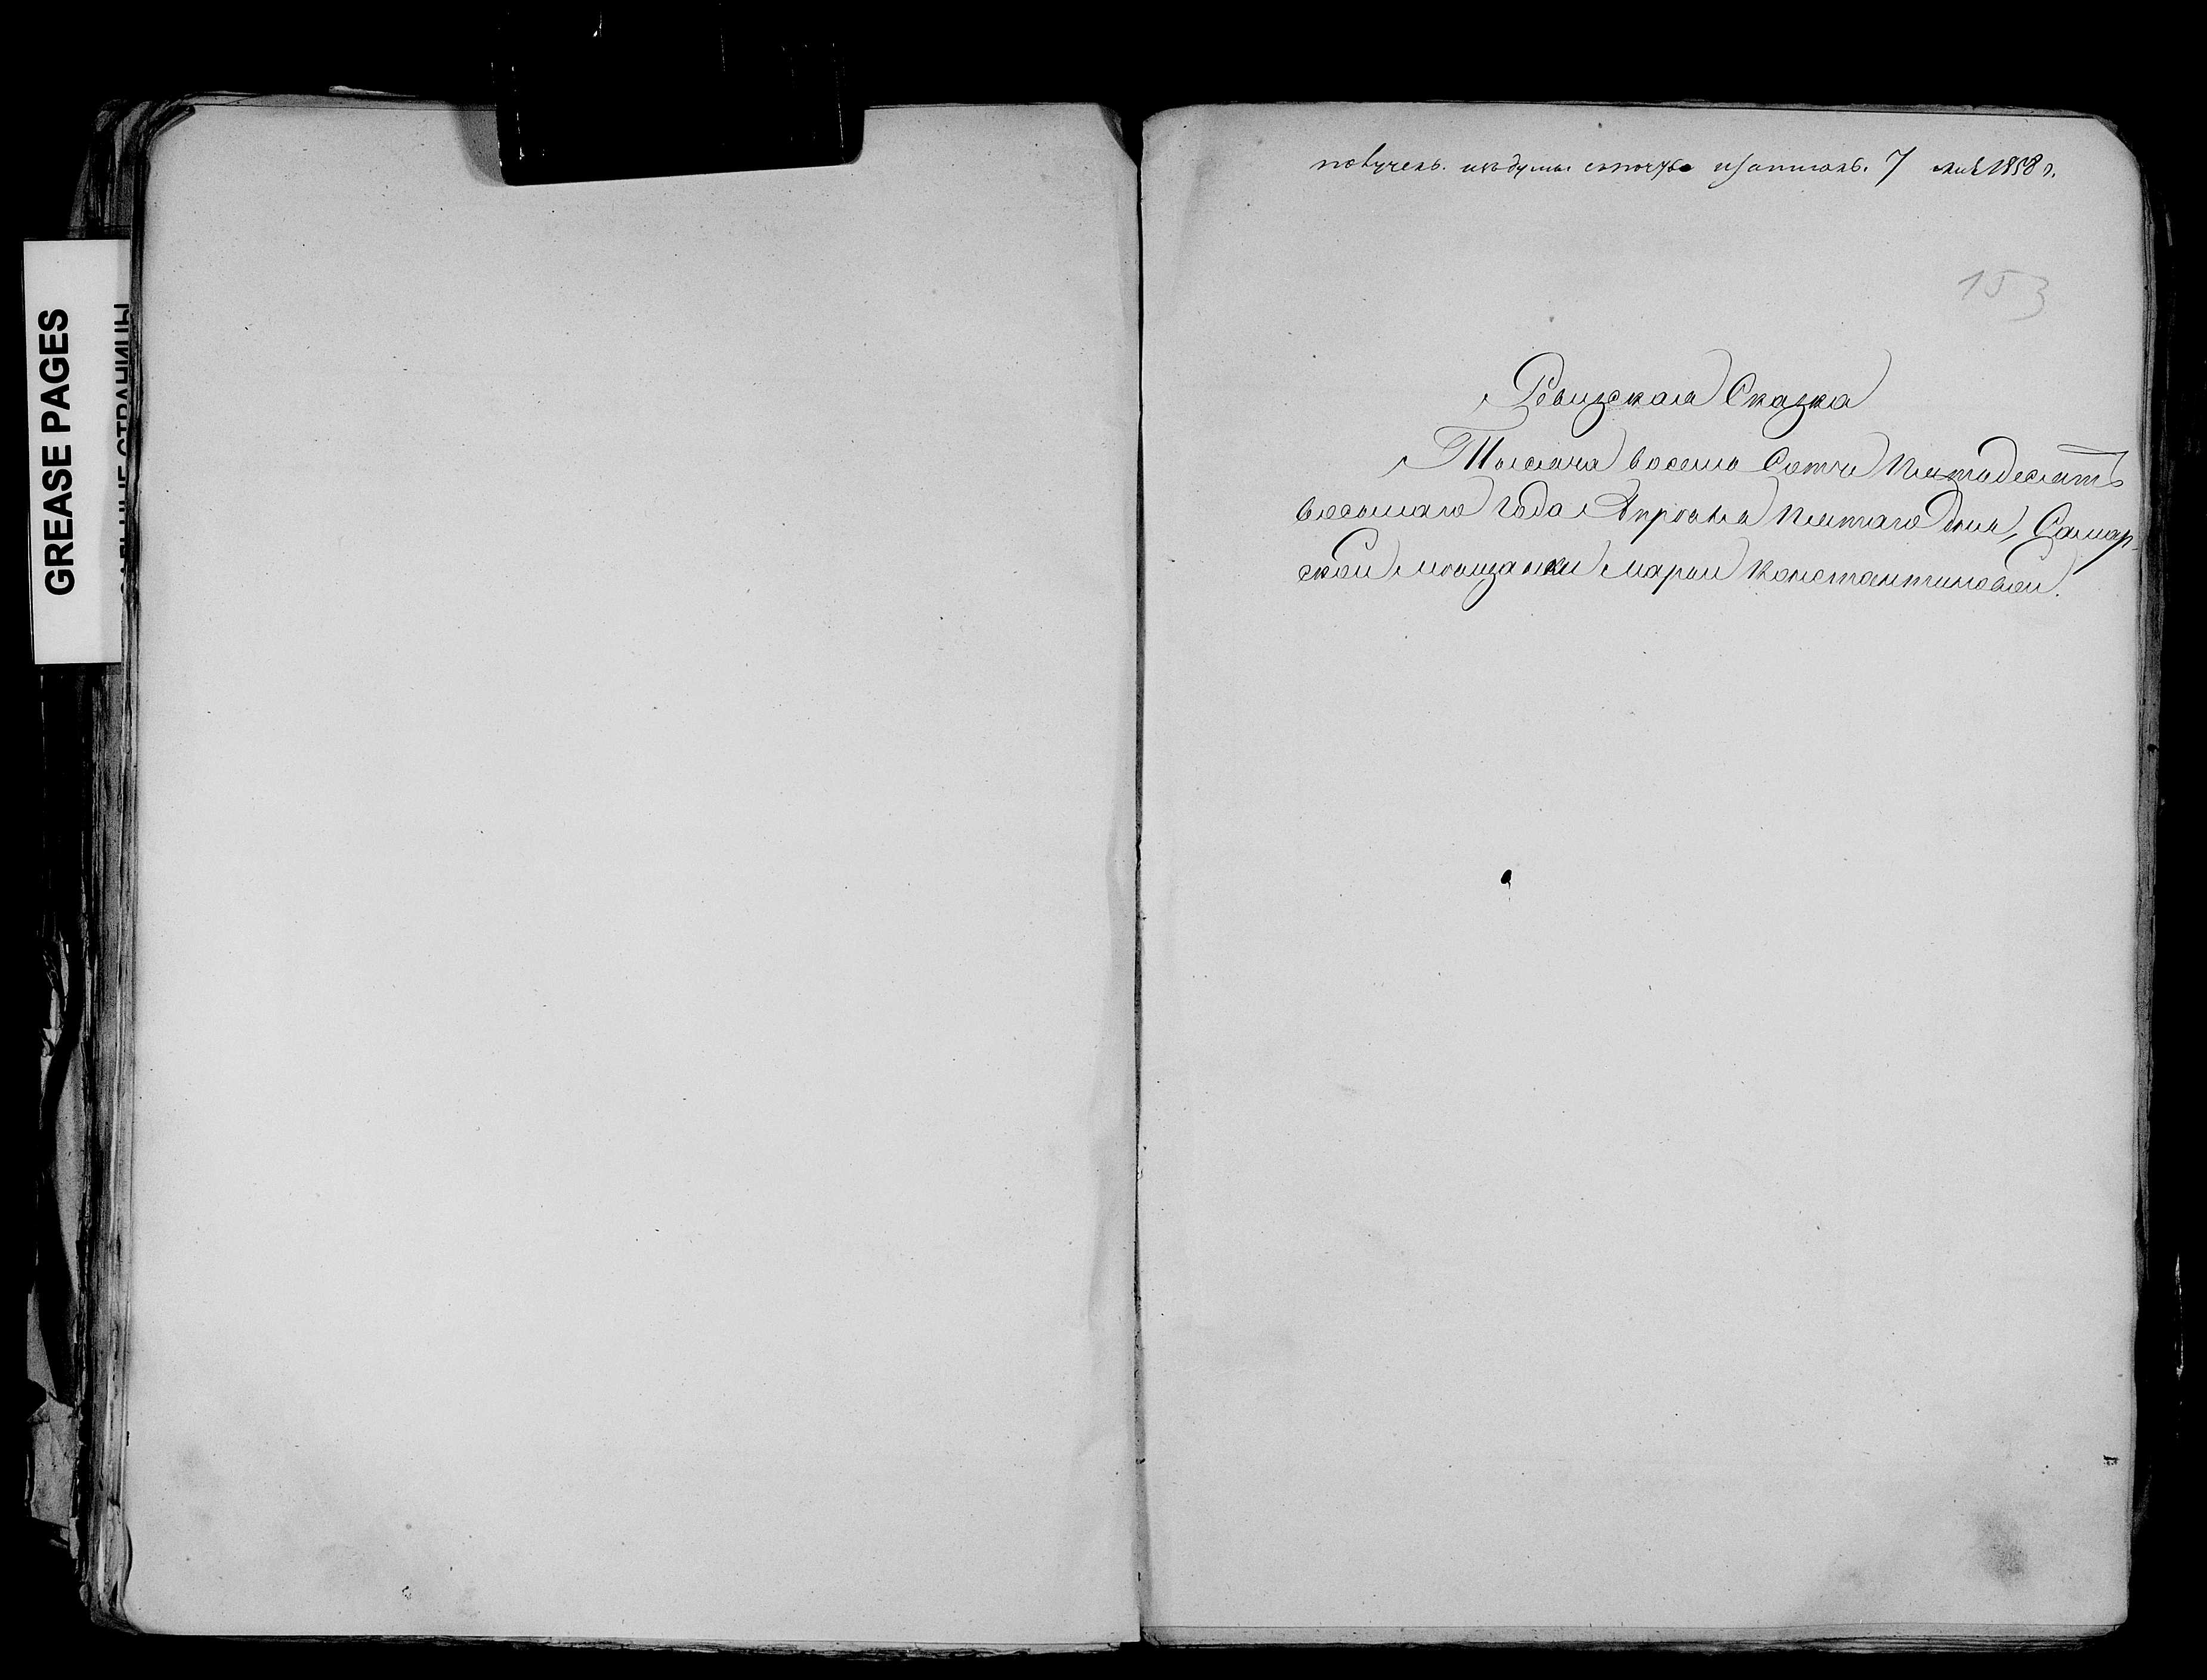 GREASE PAGES
САЛЬНЫЕ СТРАНИЦЫ
получень. изъ думы 7 мая 1858 г.
153
Ревизская Сказка
Тысяча восемь Сотъ Пятьдесятъ
восьмаго Года Апрѣля Пятаго дня, Самар-
ской мѣщанки Марьи Константиновой.